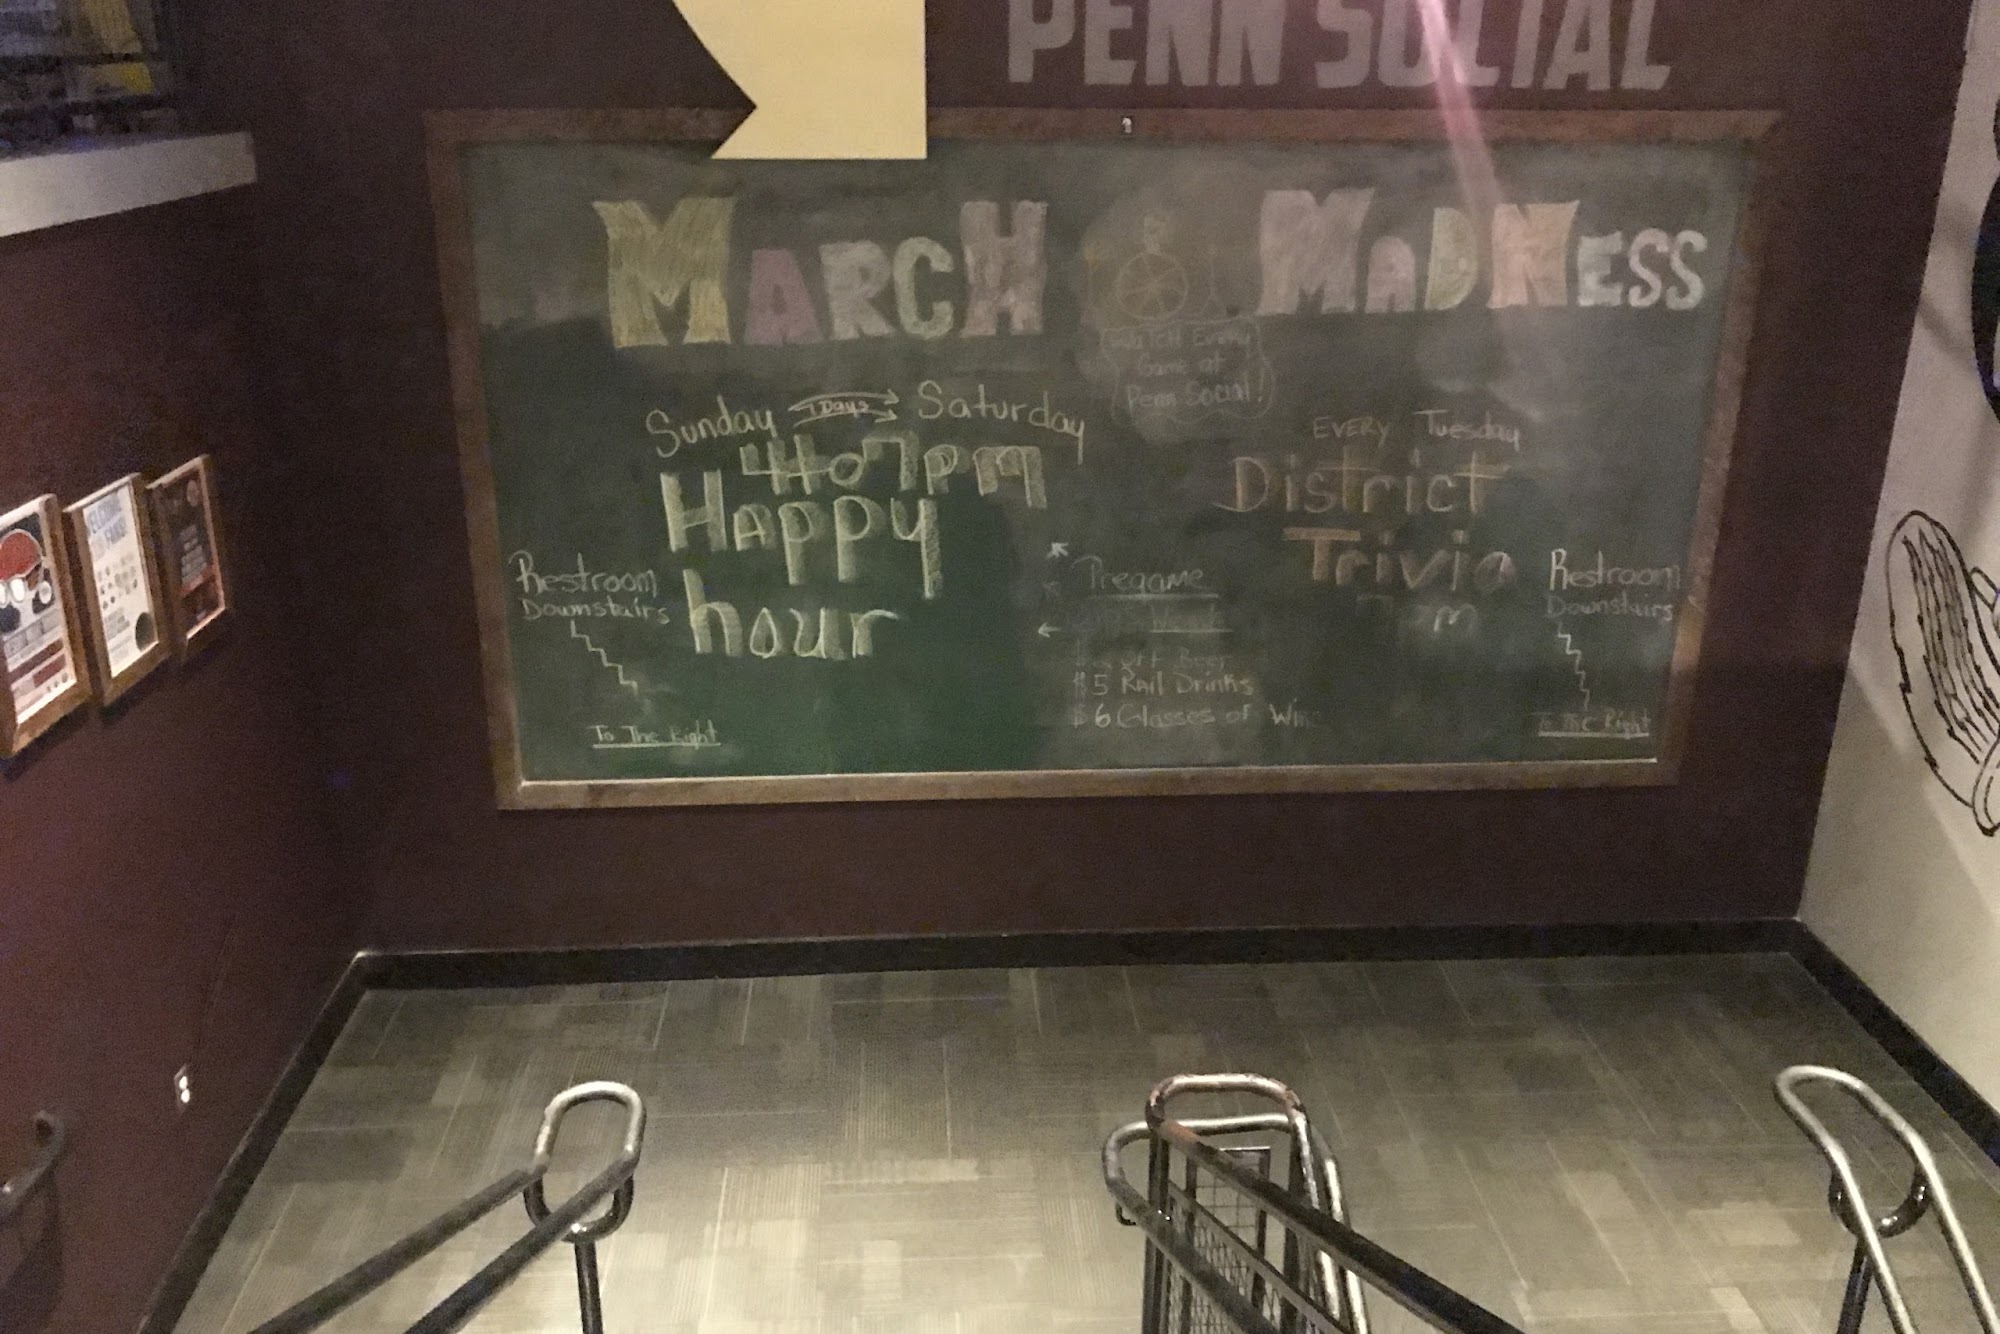 PENN SOCIAL
MARCH MADNESS
Watch Every
Game at
Penn Social!
Sunday 7 Days Saturday
4to7pm
Happy
hour
EVERY Tuesday
District
Trivia
7pm
Restroom
Downstairs
To The Right
Pregame
Beer
$5 Rail Drinks
$6 Glasses of Wine
Restroom
Downstairs
To The Right
WELCOME
FANS!